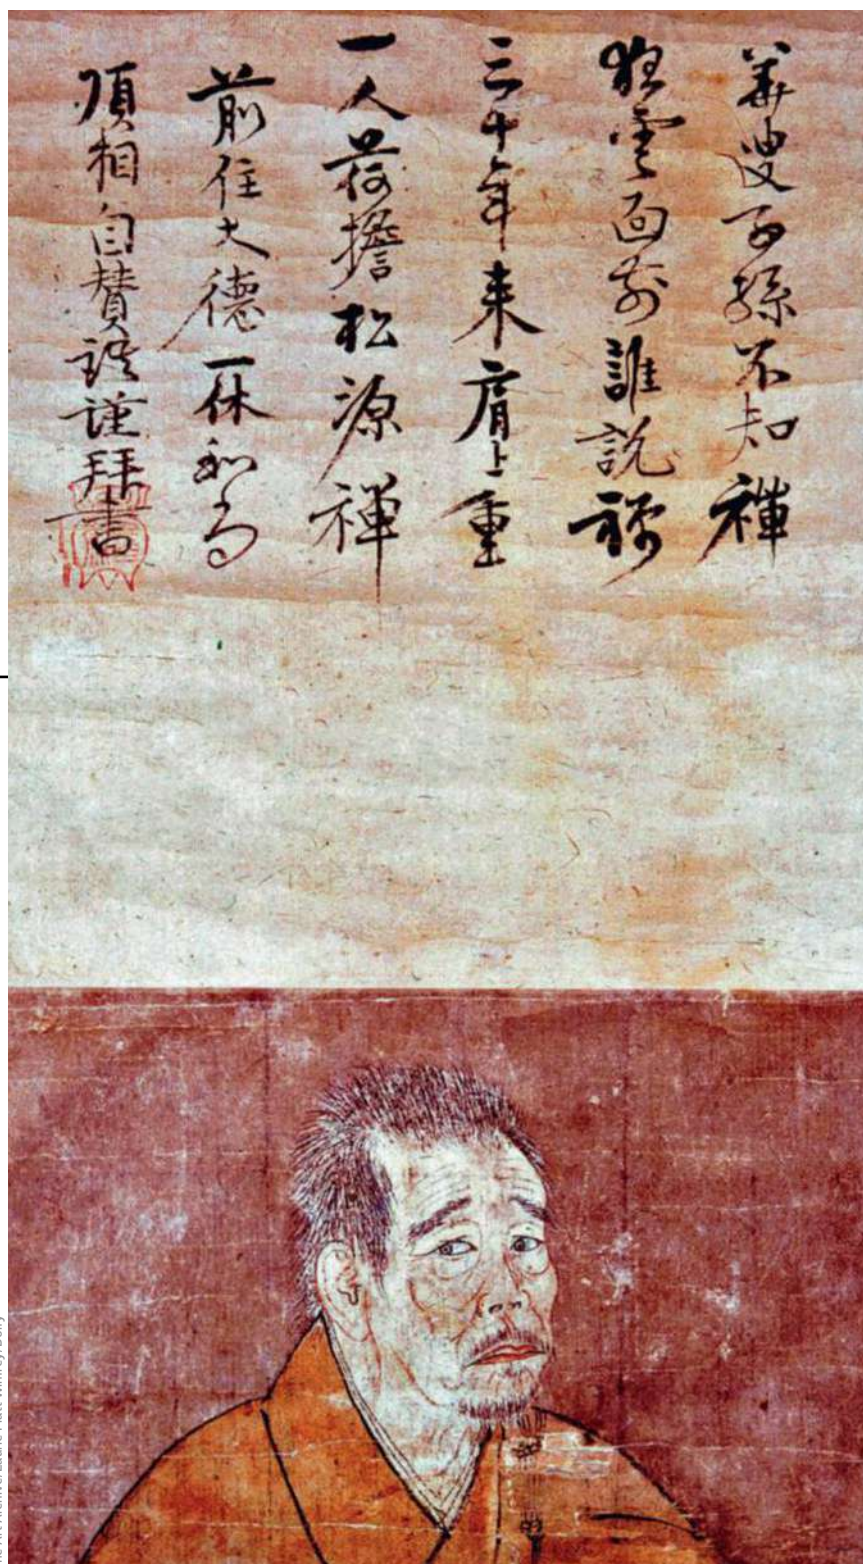 華叟子孫不知禅
狂雲面前誰説禅
三十年来肩上重
一人荷擔松源禅
前住大徳一休和尚
頂相自賛語謹拝書